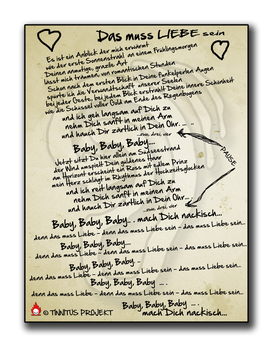 Das muss LIEBE sein
Es ist ein Anblick der mich erwärmt
wie der erste Sonnenstrahl an einem Frühlingsmorgen
Deinen anmutige, grazile Art
lässt mich träumen, von romantischen Stunden
Schon nach dem ersten Blick in Deine funkelnden Augen
spürte ich die Verwandtschaft unserer Seelen
bei jeder Geste, bei jedem Blick erstrahlt Deine innere Schönheit
wie die Schüssel voller Gold am Ende des Regenbogens
und ich geh langsam auf Dich zu
nehm Dich sanft in meinen Arm
und hauch Dir zärtlich in Dein Ohr...
...zwei, drei, vier
Baby, Baby, Baby...
PAUSE
Jetzt sitzt Du hier allein am Südseestrand
der Wind umspielt Dein goldenes Haar
am Horizont erscheint ein Reiter, ein edler Prinz
mein Herz schlägt im Rhythmus der Hochzeitsglocken
und ich reit langsam auf Dich zu
nehm Dich sanft in meinen Arm
und hauch Dir zärtlich in Dein Ohr...
...zwei, drei, vier
Baby, Baby, Baby.. mach Dich nackisch...
denn das muss Liebe sein - das muss Liebe sein - das muss Liebe sein..
Baby, Baby, Baby ...
denn das muss Liebe sein - das muss Liebe sein - das muss Liebe sein..
Baby, Baby, Baby ...
denn das muss Liebe sein - das muss Liebe sein - das muss Liebe sein..
Baby, Baby, Baby ...
denn das muss Liebe sein - das muss Liebe sein - das muss Liebe sein..
Baby, Baby, Baby ...
mach Dich nackisch...
© TINNITUS PROJEKT